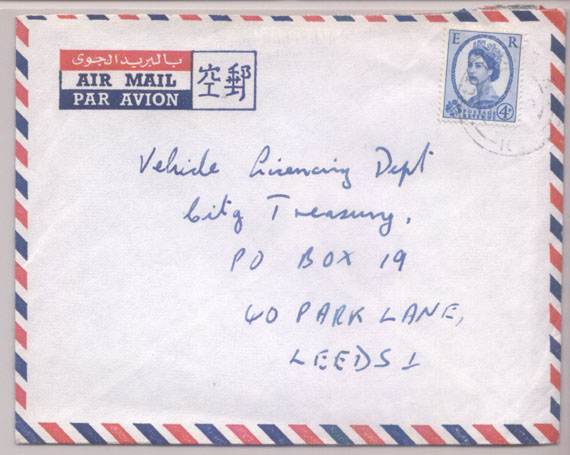 بالبريد الجوى
AIR MAIL
PAR AVION
空郵
E R
POSTAGE
REVENUE
4D
Vehicle Licencing Dept
City Treasury,
PO BOX 19
40 PARK LANE,
LEEDS 1